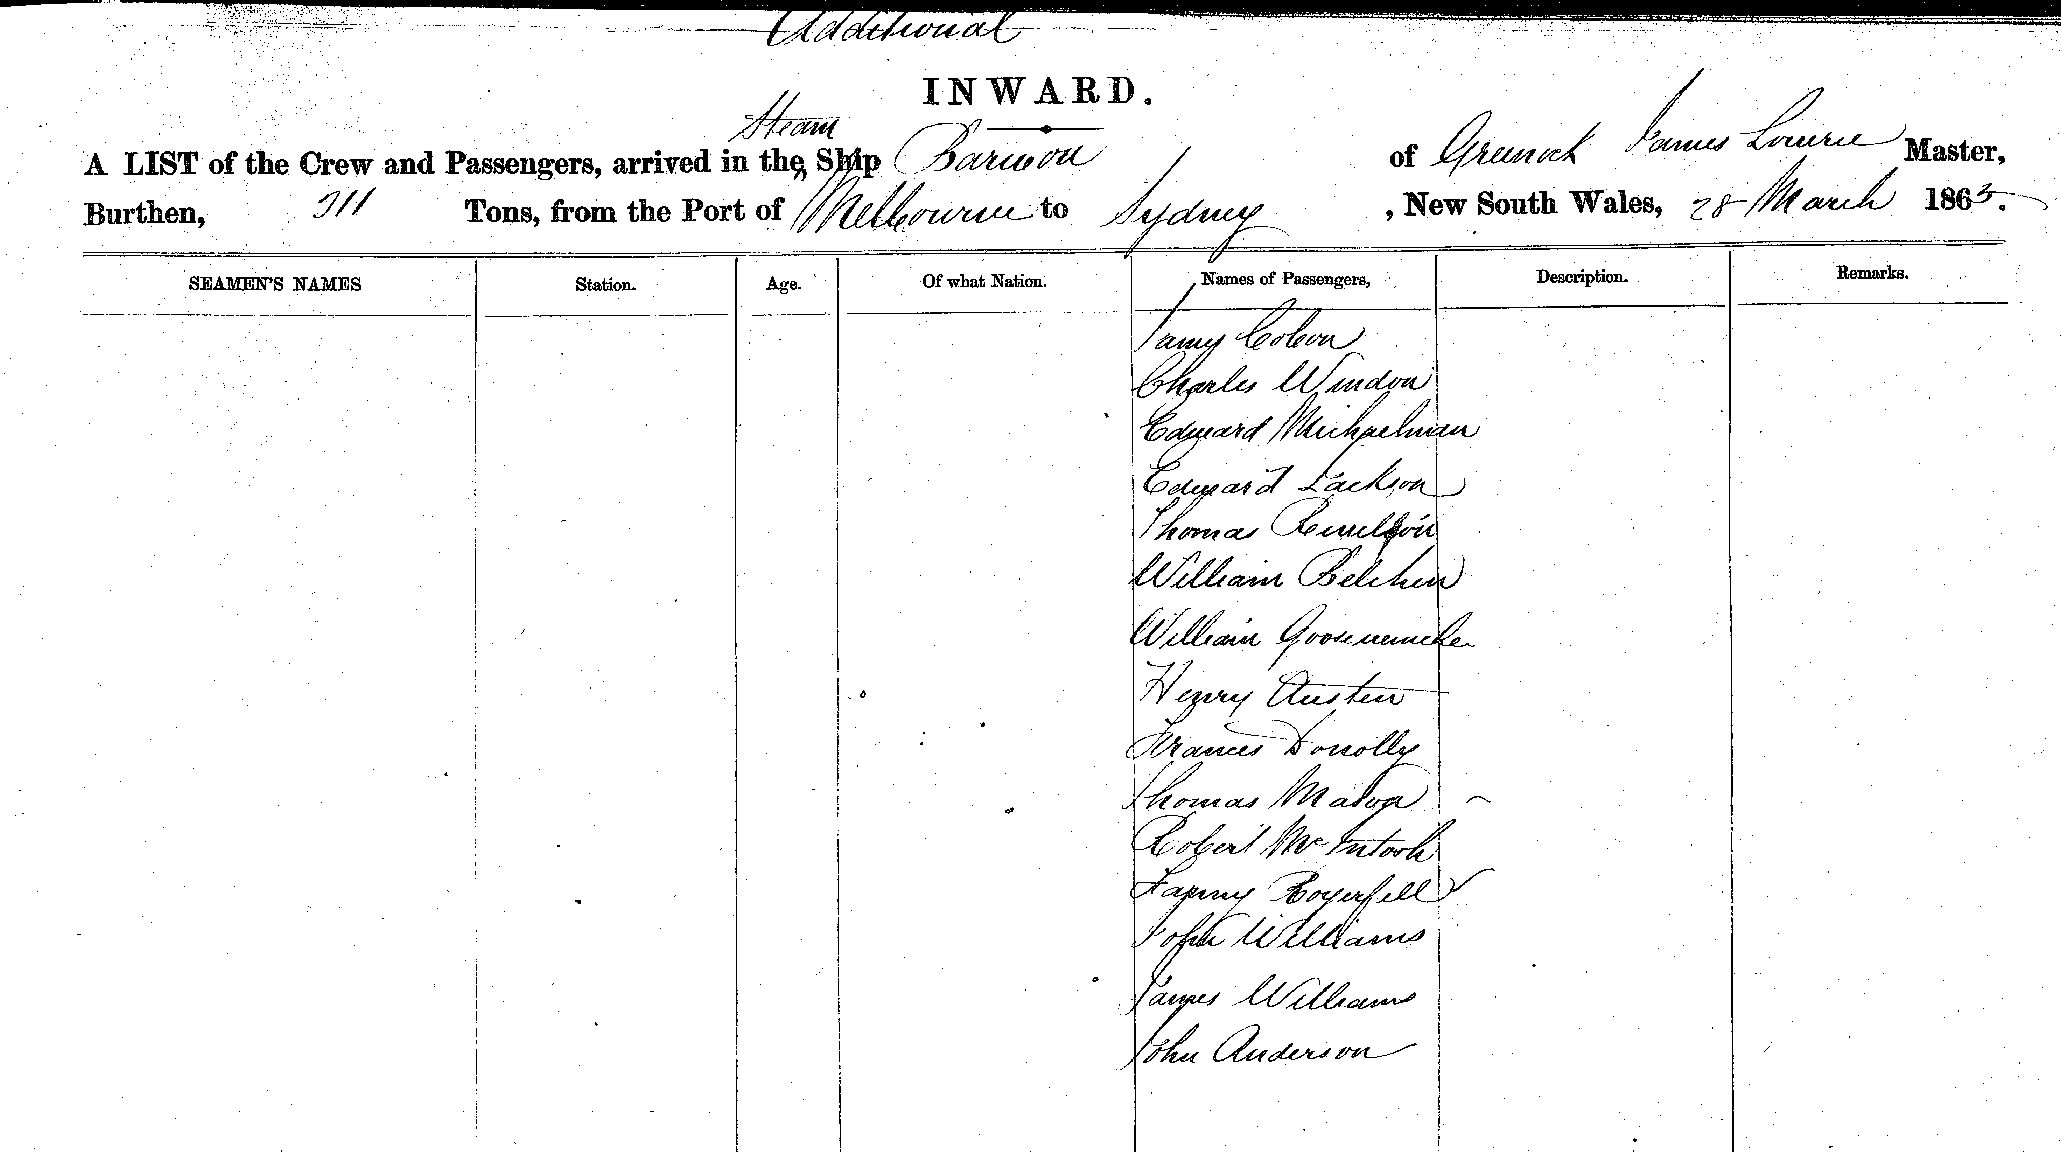 Additional
INWARD.
Steam
A LIST of the Crew and Passengers, arrived in the Ship Barwon of Greenock James Lowrie Master,
Burthen, 311 Tons, from the Port of Melbourne to Sydney, New South Wales, 28 March 1863.
SEAMEN'S NAMES Station. Age. Of what Nation. Names of Passengers, Description. Remarks.
Charles Windon
Edward Michaelman
Edward Jackson
Thomas
William
William
Henry Austen
Frances Donolly
Thomas
Robert McIntosh
Fanny
John Williams
James Williams
John Anderson